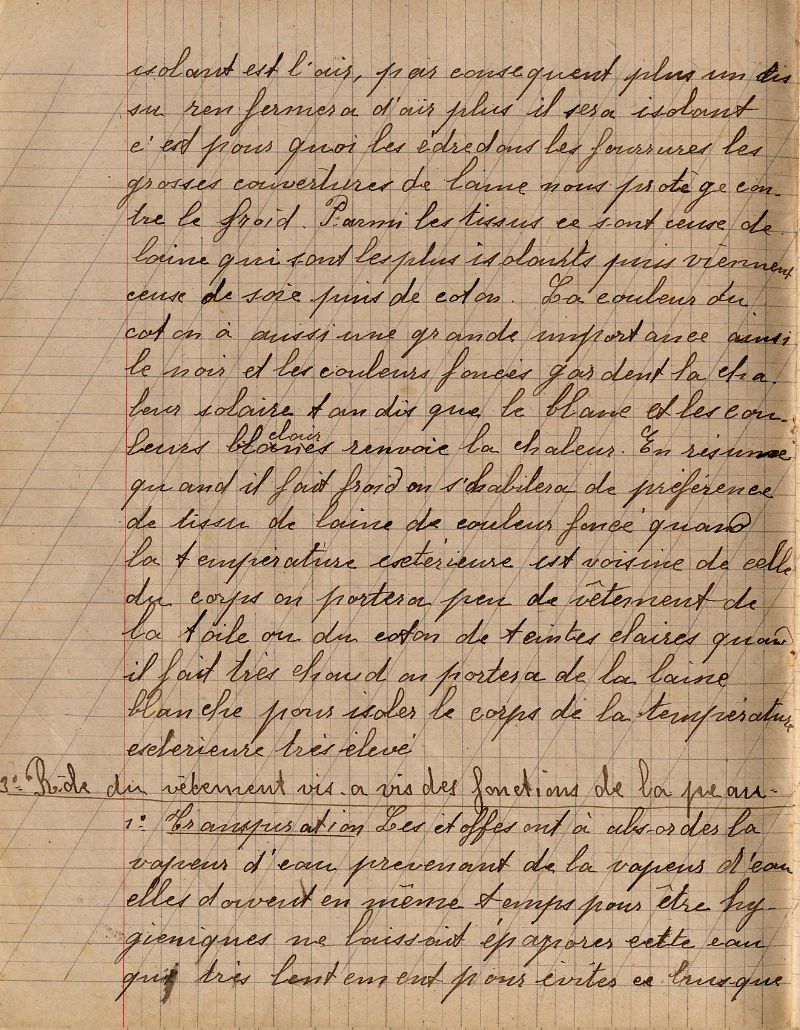 isolant est l'air, par consequent plus un tis
su renfermera d'air plus il sera isolant
c'est pour quoi les édredons les fourrures les
grosses couvertures de laine nous protège con-
tre le froid. Parmi les tissus ce sont ceuse de
laine qui sont les plus isolants puis viennent
ceuse de soie puis de coton. La couleur du
coton à aussi une grande importance ainsi
le noir et les couleurs foncés gardent la cha-
leur solaire tandis que le blanc et les cou-
leurs clair renvoie la chaleur. En résume
quand il fait froid on s'habilera de préférence
de tissu de laine de couleur foncé quand
la température esctérieure est voisine de celle
du corps on portera peu de vêtement de
la toile ou du coton de teintes claires quand
il fait très chaud on portera de la laine
blanche pour isoler le corps de la température
esctérieure très élevé
3º Rôle du vêtement vis-a vis des fonctions de la peau-
1º Transpiration Les étoffes ont à absorder la
vapeur d'eau prevenant de la vapeur d'eau
elles doivent en même temps pour être hy-
gieniques ne laissait épaporer cette eau
que très lentement pour évites ce brusque